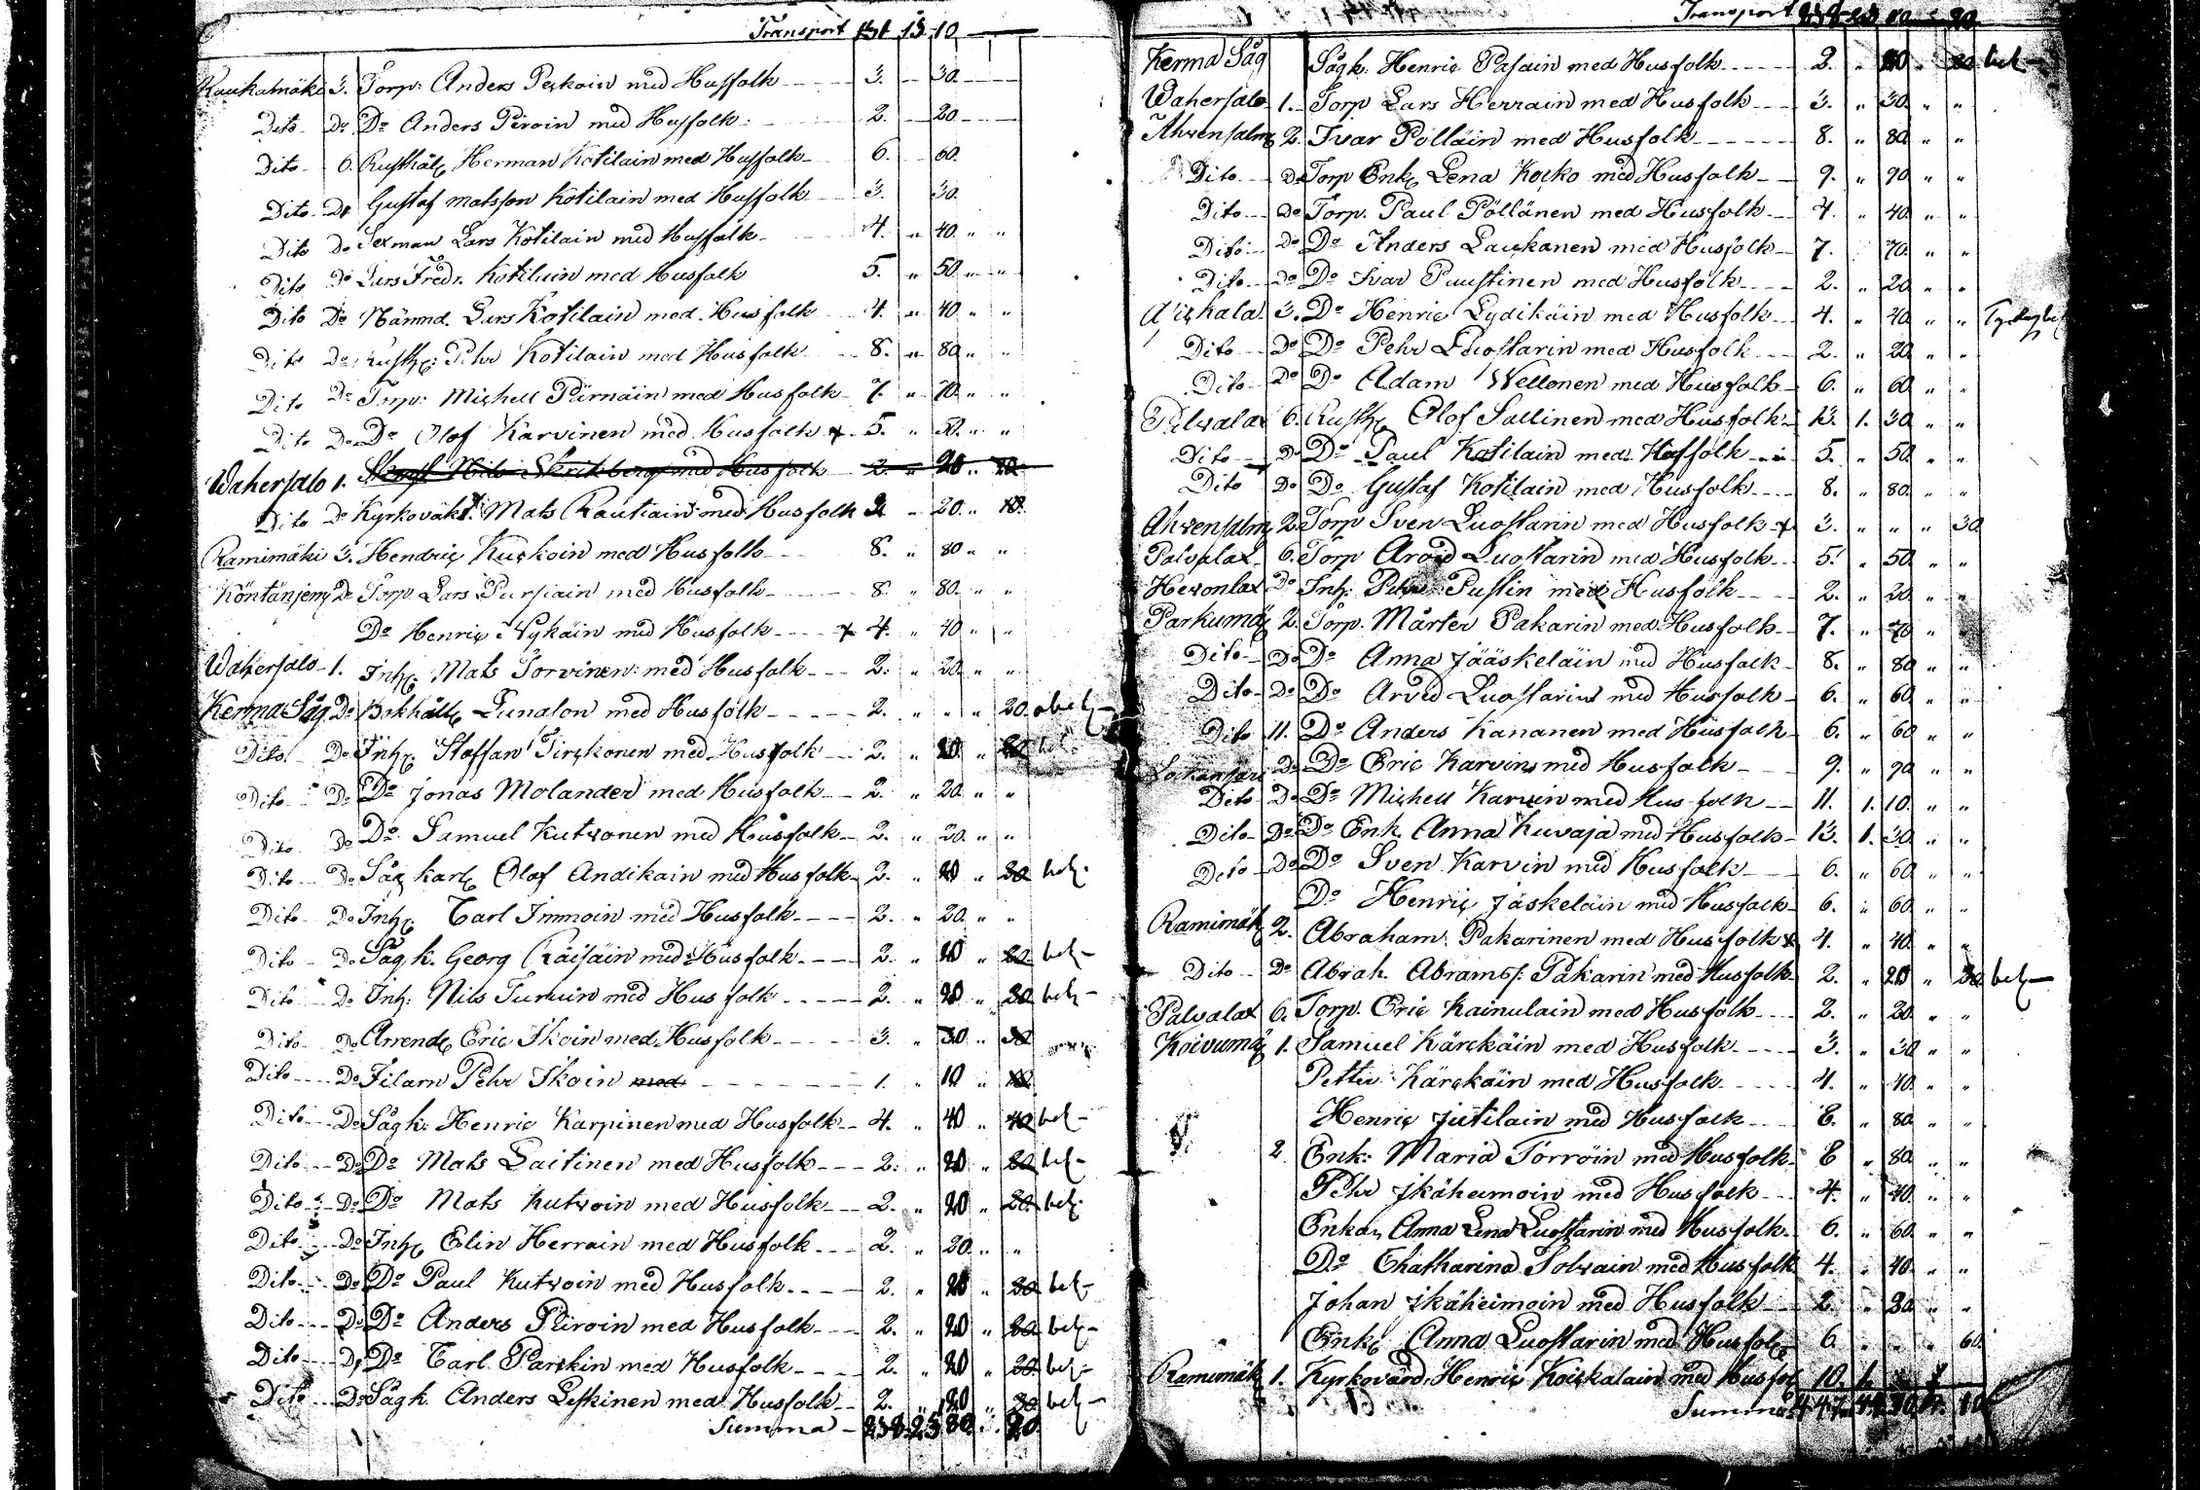 Transport 131 13 10
Raukalmäki 3. Torp: Anders Peskoin med Husfolk 3. 30.
Dito Do Do Anders Piroin med Husfolk 2. 20
Dito 6. Rusthål Herman Kotilain med Husfolk 6. 60.
Dito Do Gustaf Matsson Kotilain med Husfolk 3. 30.
Dito Do Sexman Lars Kotilain med Husfolk 4. " 40. " "
Dito Do Lars Fredr. Kotilain med Husfolk 5. " 50. " "
Dito Do Nämnd. Lars Kotilain med Husfolk 4. " 40. " "
Dito Do Rusth: Pehr Kotilain med Husfolk 8. " 80. " "
Dito Do Torp: Michell Pürnäin med Husfolk 7. " 70. " "
Dito Do Do Olof Karvinen med Husfolk x 5. " 50. " "
Wahersalo 1. Nils Skrikberg med Husfolk 2. " 20 " 20
Dito Do Kyrkovakt. Mats Rautiain med Husfolk 2. " 20. "
Ramimäki 3. Hendric Kuckoin med Husfolk 8. " 80 " "
Köntänjemi Do Torp. Lars Purjiain med Husfolk 8. " 80. " "
Do Henric Nykäin med Husfolk x 4. " 40 " "
Wahersalo 1. Inh. Mats Torvinen med Husfolk 2. " 20. " "
Kerma Såg Do Bokhåll Lunalon med Husfolk 2. " " " 20. bet
Dito Do Inh. Staffan Tirckonen med Husfolk 2. " 20. " 20 bet
Dito Do Do Jonas Molander med Husfolk 2. " 20. " "
Dito Do Do Samuel Kutvonen med Husfolk 2. " 20. " "
Dito Do Såg karl Olof Andikain med Husfolk 2. " 20 " 20 bet
Dito Do Inh. Carl Immoin med Husfolk 2. " 20. " "
Dito Do Såg k. Georg Räisäin med Husfolk 2. " 20 " 20 bet
Dito Do Inh: Nils Turuin med Husfolk 2. " 20 " 20 bet
Dito Do Arrend Eric Ikoin med Husfolk 3. " 30 " 30
Dito Do Filarn Pehr Ikoin med 1. " 10 " 10
Dito Do Sågk: Henric Karpinen med Husfolk 4. " 40 " 40 bet
Dito Do Do Mats Laitinen med Husfolk 2. " 20 " 20 bet
Dito Do Do Mats Kutvoin med Husfolk 2. " 20 " 20 bet
Dito Do Inh Elin Herrain med Husfolk 2. " 20. " "
Dito Do Do Paul Kutvoin med Husfolk 2. " 20 " 20 bet
Dito Do Do Anders Piiroin med Husfolk 2. " 20 " 20 bet
Dito Do Do Carl Parckin med Husfolk 2. " 20 " 20 bet
Dito Do Sågk. Anders Leskinen med Husfolk 2. " 20 " 20 bet
Summa 238. 23 80 " 20.
Transport 238 23 80 " 20
Kerma Såg Sågk. Henric Pasain med Husfolk 2. " 20 " 20 bet
Wahersalo 1. Torp Lars Herrain med Husfolk 3. " 30. " "
Ahvensalmi 2. Ivar Pölläin med Husfolk 8. " 80 " "
Dito Do Torp Enk Lena Kocko med Husfolk 9. " 90 " "
Dito Do Torp. Paul Pöllänen med Husfolk 4. " 40 " "
Dito Do Do Anders Laukanen med Husfolk 7. 70. " "
Dito Do Do Ivar Puustinen med Husfolk 2. " 20 " "
3. Do Henric Lydikäin med Husfolk 4. " 40 " "
Dito Do Do Pehr Luostarin med Husfolk 2. " 20 " "
Dito Do Do Adam Wellonen med Husfolk 6. " 60. " "
Palvalax 6. Rusth Olof Sallinen med Husfolk 13. 1. 30 " "
Dito Do Do Paul Kotilain med Husfolk 5. " 50. " "
Dito Do Do Gustaf Kotilain med Husfolk 8. " 80. " "
Ahvensalmi 2. Torp Sven Luostarin med Husfolk x 3. " " " 30.
Palvalax 6. Torp Arvid Luostarin med Husfolk 5. " 50. " "
Hevonlax Do Inh. Pehr Pustin med Husfolk 2. " 20 " "
Parkumäki 2. Torp. Mårten Pakarin med Husfolk 7. " 70 "
Dito Do Do Anna Jääskeläin med Husfolk 8. " 80 " "
Dito Do Do Arvid Luostarin med Husfolk 6. " 60 " "
Dito 11. Do Anders Kananen med Husfolk 6. " 60 " "
Do Do Eric Karvin med Husfolk 9. " 90 " "
Dito Do Do Michell Karvin med Husfolk 11. 1. 10. " "
Dito Do Do Enk Anna Kuvaja med Husfolk 13. 1. 30. " "
Dito Do Do Sven Karvin med Husfolk 6. " 60 " "
Do Henric Jäskeläin med Husfolk 6. " 60 " "
Ramimäki 2. Abraham Pakarinen med Husfolk x 4. " 40. " "
Dito Do Abrah. Abramss: Pakarin med Husfolk 2. " 20 " 20 bet
Palvalax 6. Torp. Eric Kainulain med Husfolk 2. " 20 " "
Koivumäki 1. Samuel Kärckäin med Husfolk 3. " 30 " "
Petter Kärckäin med Husfolk 4. " 40 " "
Henric Jutilain med Husfolk 8. " 80 " "
2 Enk: Maria Torröin med Husfolk 8 " 80. " "
Pehr Ikäheimoin med Husfolk 4. " 40. " "
Enkan Anna Lena Luostarin med Husfolk 6. " 60. " "
Do Chatharina Tolvain med Husfolk 4. " 40. " "
Johan Ikäheimoin med Husfolk 2. " 20. " "
Enk Anna Luostarin med Husfolk 6. " " " 60.
Ramimäki 1. Kyrkovärd Henric Koickalain med Husfol 10. 1.
Summa 447. 10